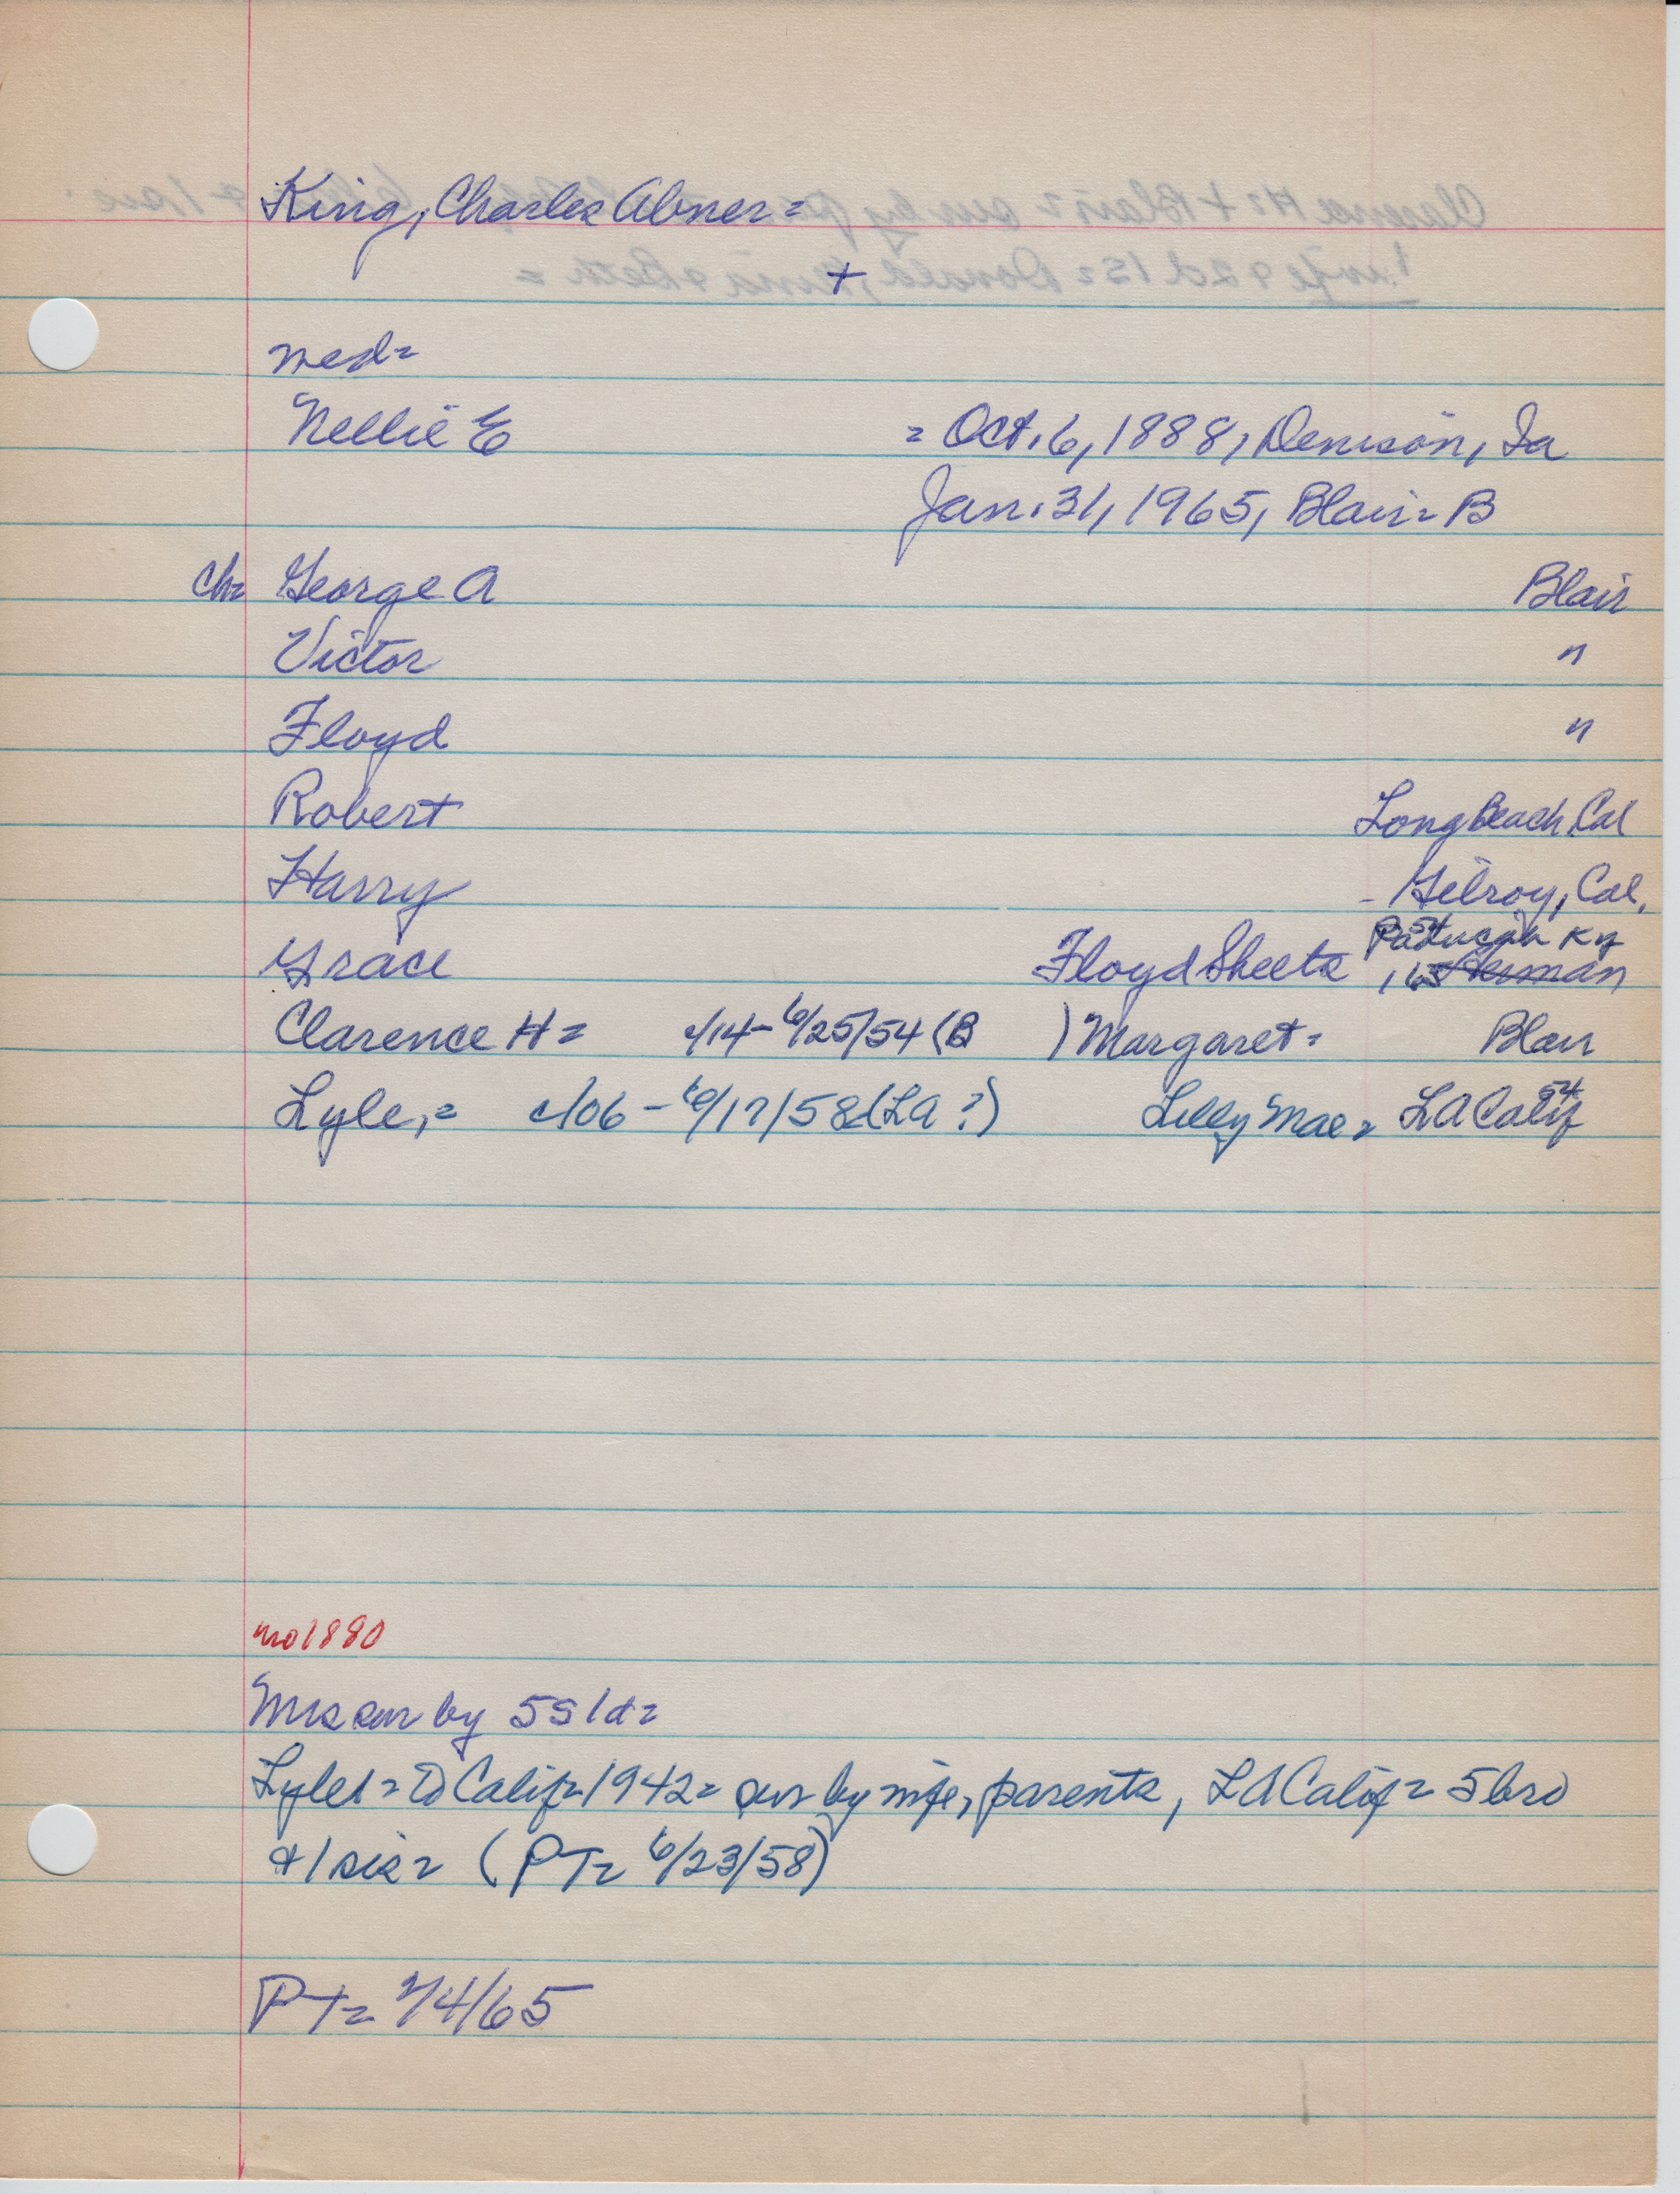 King, Charles Abner =
+
med =
Nellie E = Oct. 6, 1888, Denison, Ia
Jan. 31, 1965, Blair = B
Ch = George A Blair
Victor "
Floyd "
Robert Long Beach Cal
Harry - Gilroy, Cal.
54 Paducah Ky
Grace Floyd Sheets , 65 Herman
Clarence H = c/14 - 6/25/54 (B ) Margaret = Blair
Lyle, = c/06 - 6/17/58 (LA ?) Lilly Mae = LA Calif 54
no 1880
Mrs sur by 5s 1d =
Lyle1 = to Calif = 1942 = sur by wife, parents, LA Calif = 5 bro
& 1 sis = (PT = 6/23/58)
PT = 2/4/65